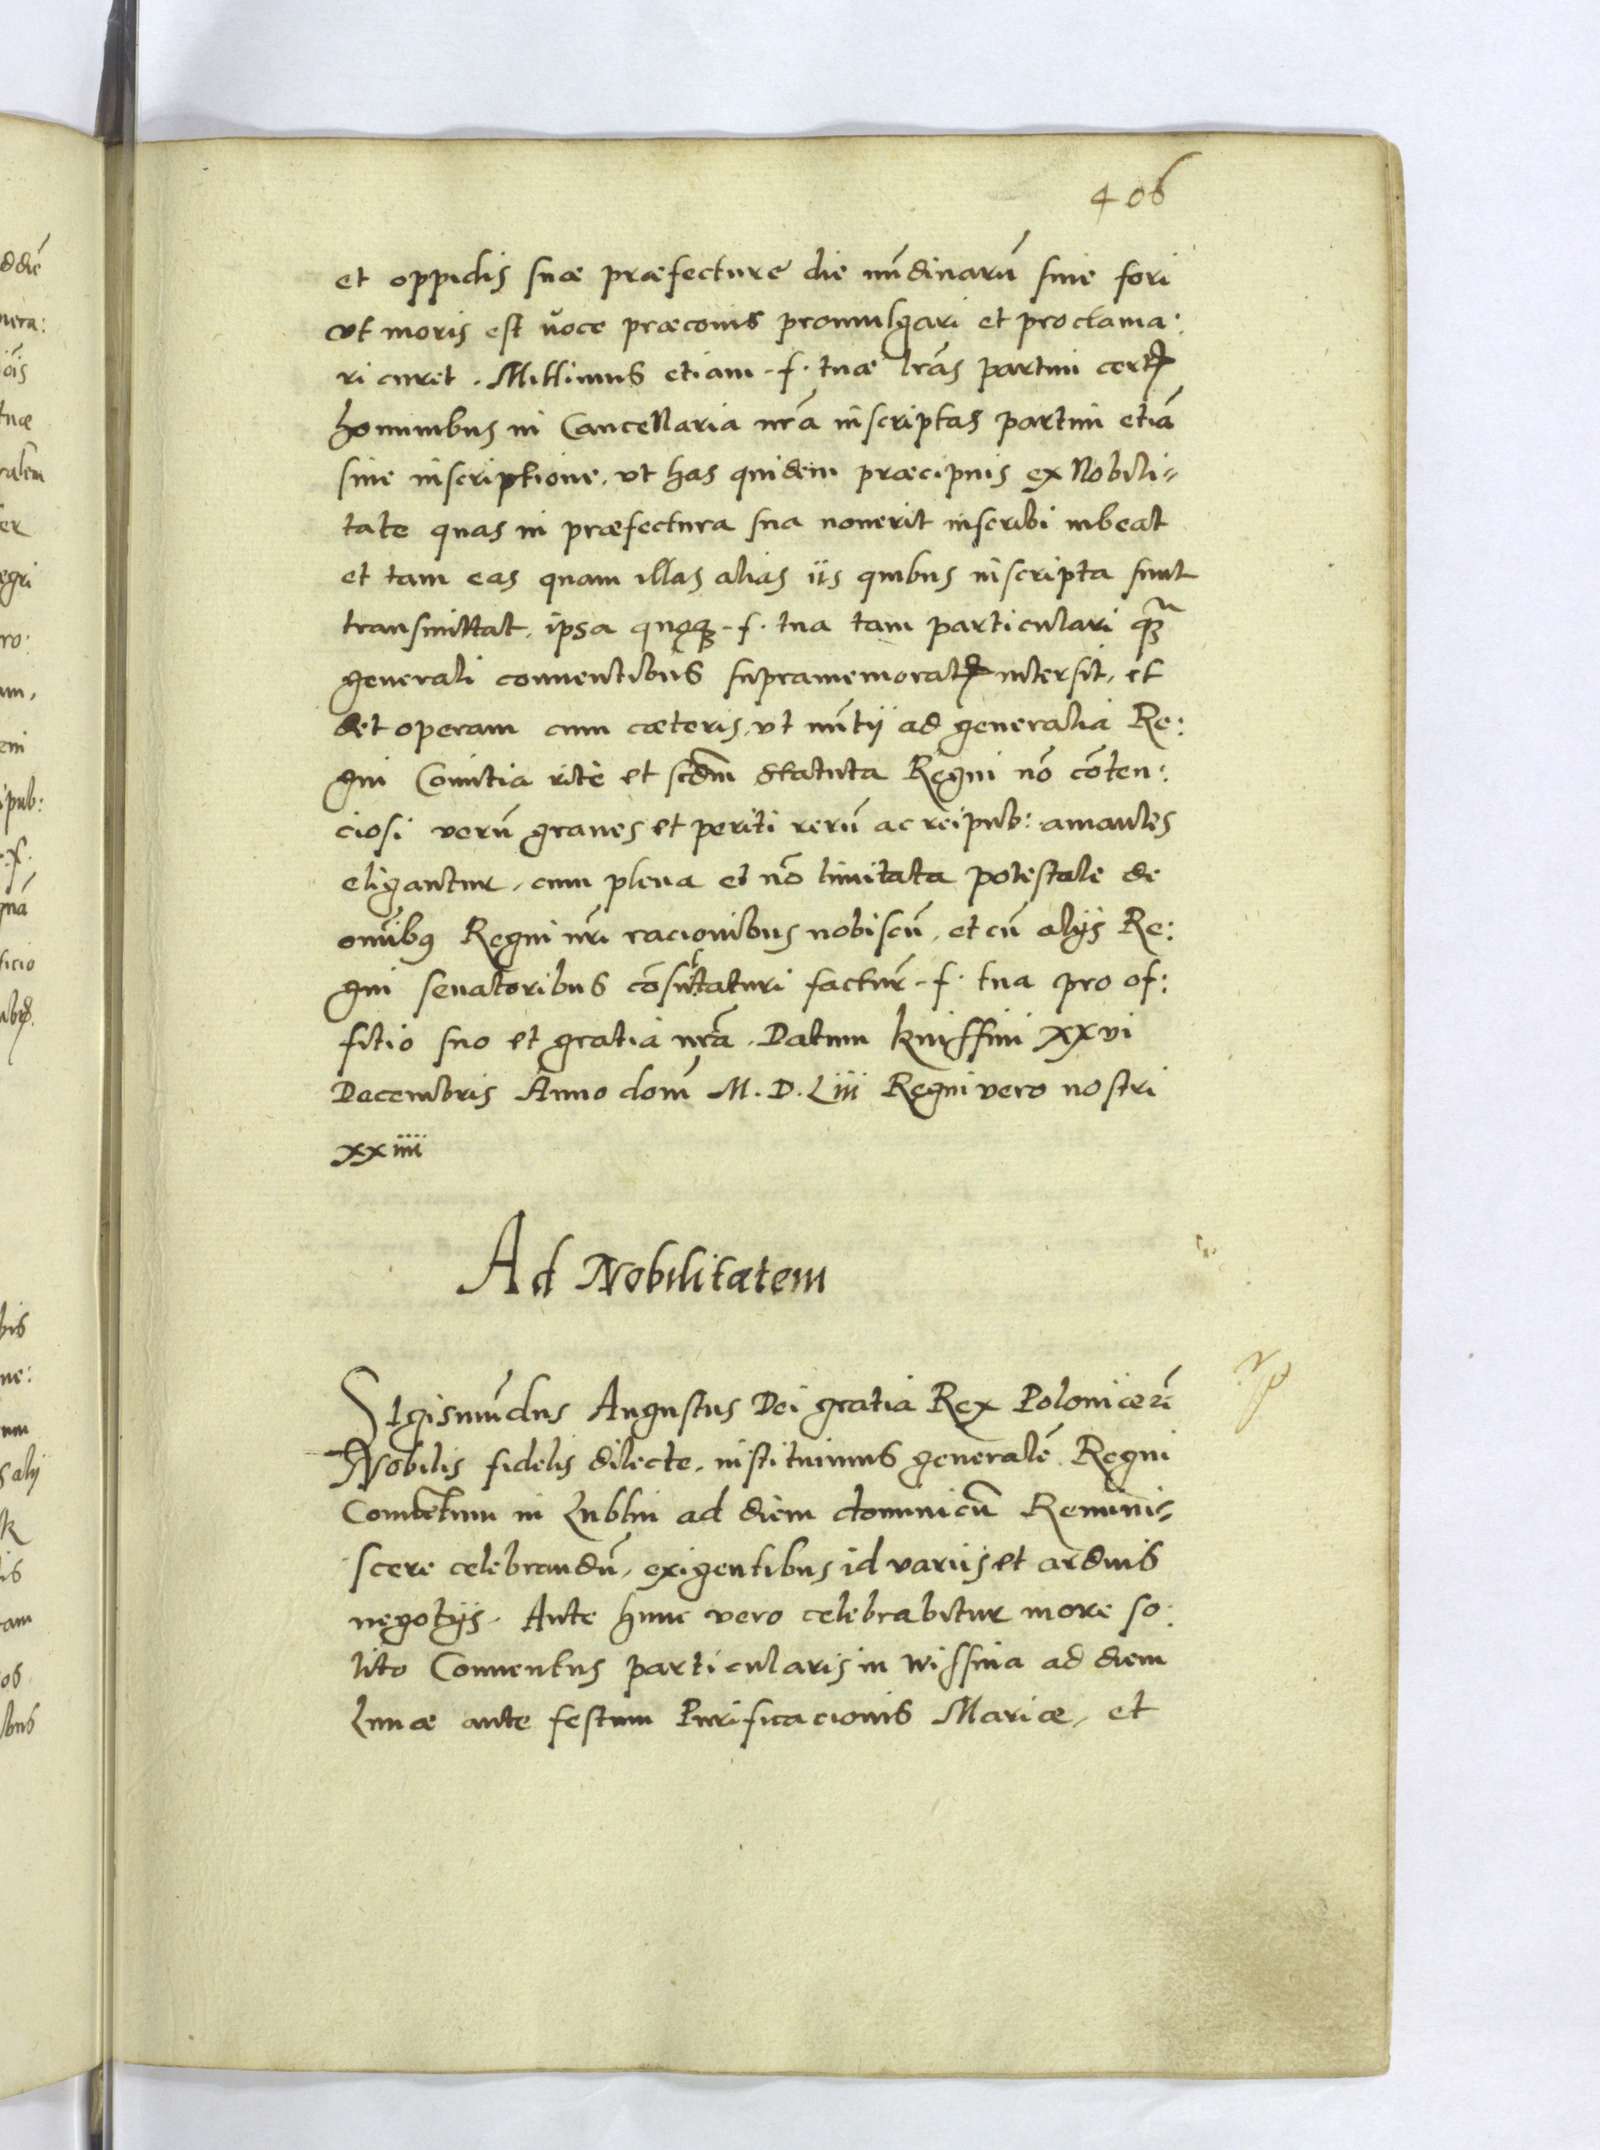 406
et oppidis suæ præfecture die nūdinarū sive fori
vt moris est voce præconis promulgari et proclama:
ri curet. Mittimus etiam .f. tuæ lrās partim cert
hominibus in Cancellaria nrā inscriptas partim etiā
sine inscriptione, vt has quidem præcipuis ex Nobili=
tate quas in præfectura sua noverit inscribi iubeat
et tam eas quam illas alias iis quibus inscripta sunt
transmittat, ipsa quoq .f. tua tam particulari q̃
generali conventibus supramemorat intersit, et
det operam cum cæteris, vt nūtij ad generalia Re:
gni Comitia rite et scdm̄ statuta Regni nō cōten:
ciosi verū graves et periti rerū ac reipub: amantes
eligantur, cum plena et nō limitata potestate de
omībus Regni nri racionibus nobiscū, et cū alijs Re:
gni senatoribus cōsultaturi factur .f. tua pro of:
fitio suo et gratia nrā. Datum Knissini xxvi
Decembris Anno dom̄ M. D. Liii Regni vero nostri
xxiiii
Ad Nobilitatem
Sigismūdus Augustus Dei gratia Rex Poloniæ
Nobilis fidelis dilecte, instituimus generalē Regni
Conventum in Lublin ad diem dominicū Remini=
scere celebrandū, exigentibus id variis et arduis
negotijs. Ante hunc vero celebrabitur more so:
lito Conventus particularis in Wissnia ad diem
Lunæ ante festum Purificacionis Mariæ, et